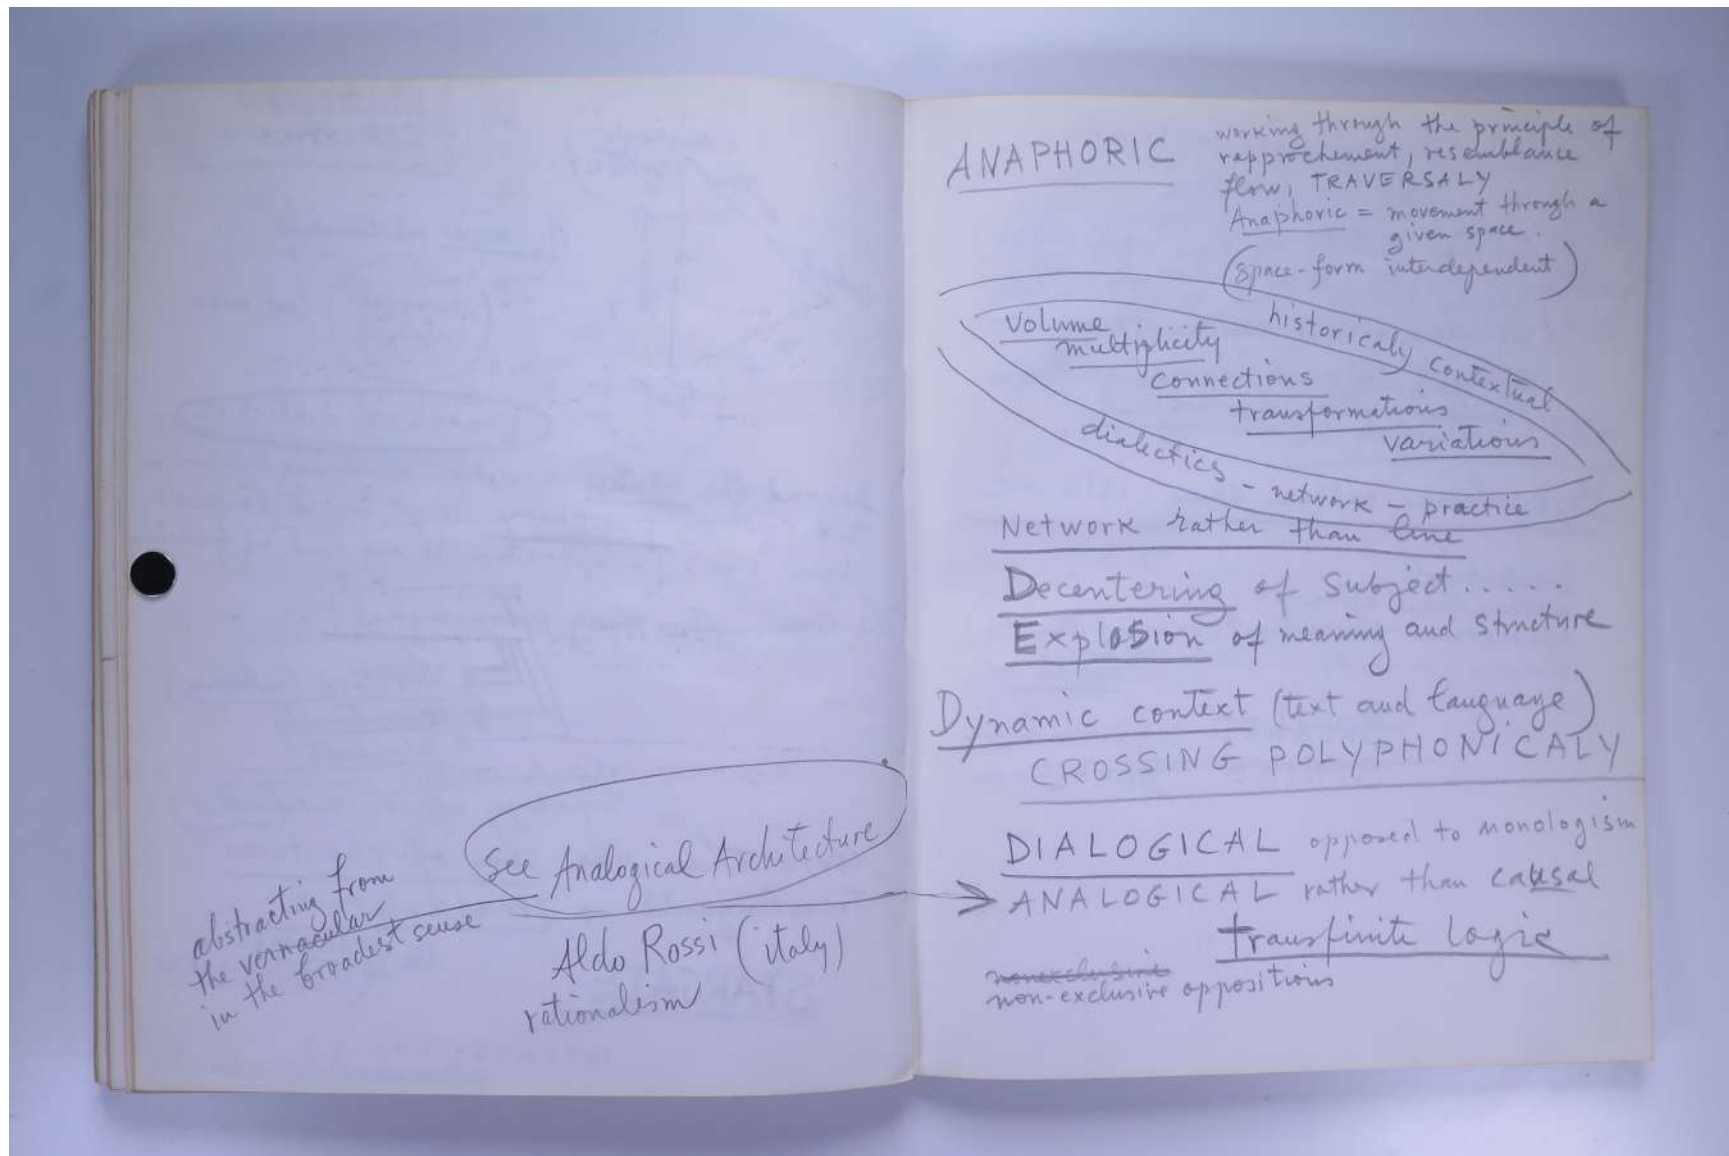 abstracting from
the vernacular
in the broadest sense
See Analogical Architecture
Aldo Rossi (italy)
rationalism
ANAPHORIC
working through the principle of
rapprochement, resemblance
flow, TRAVERSALY
Anaphoric = movement through a
given space.
(space-form interdependent)
historicaly contextual
Volume
multiplicity
connections
transformations
variations
dialectics - network - practice
Network rather than line
Decentering of subject.....
Explosion of meaning and structure
Dynamic context (text and language)
CROSSING POLYPHONICALY
DIALOGICAL opposed to monologism
ANALOGICAL rather than causal
transfinite logic
nonexclusive
non-exclusive oppositions